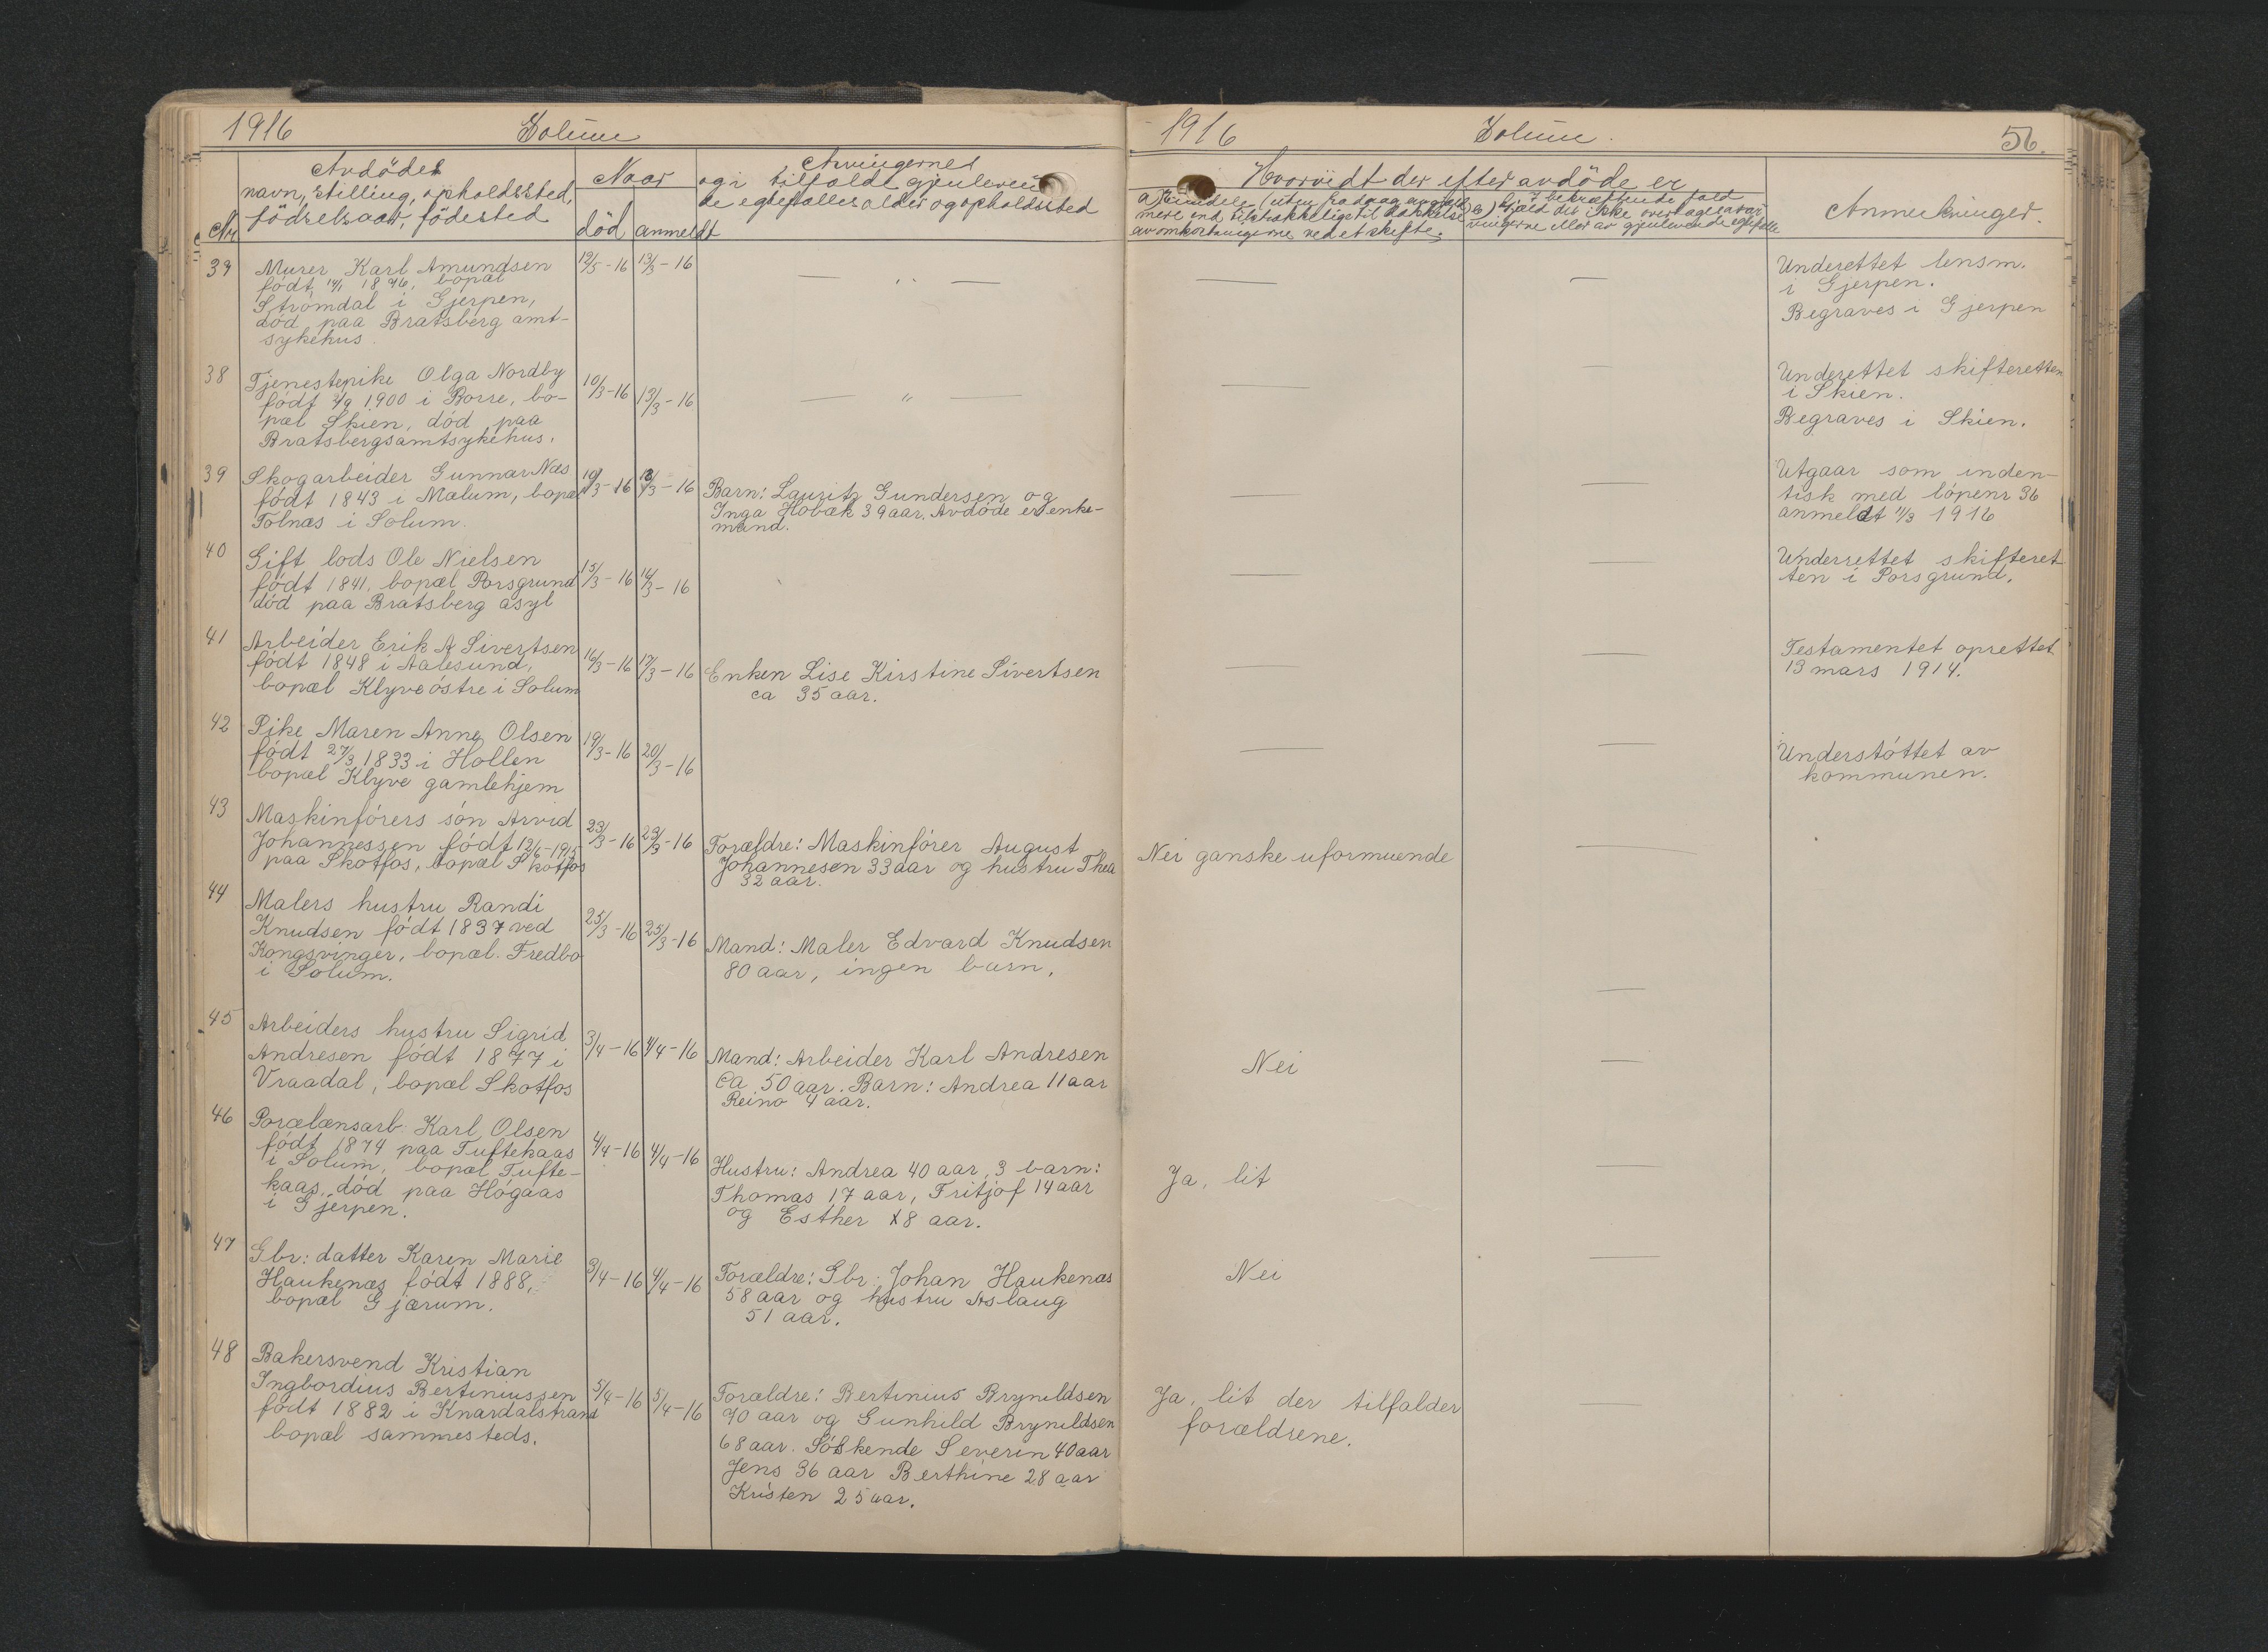 1916 Solum
Avdödes
navn, stilling, opholdssted,
födselsaar, födested
Nr
Naar
död anmeldt
Arvingernes
og i tilfælde gjenleven
de egtefælles alder og opholdssted
39 Murer Karl Amundsen
født 1876, bopæl
Strömdal i Gjerpen,
död paa Bratsberg amt-
sykehus.
12/5-16 13/3-16
— " —
38 Tjenestepike Olga Nordby
født 1900 i Borre, bo-
pæl Skien, död paa
Bratsbergsamtsykehus.
10/3-16 13/3-16
— " —
39 Skogarbeider Gunnar Næs
født 1843 i Mælum, bopæl
Tolnæs i Solum.
10/3-16 13/3-16
Barn: Lauritz Gundersen og
Inga Hobæk 39 aar. Avdöde er enke-
mand.
40 Gift lods Ole Nielsen
født 1841, bopæl Porsgrund
död paa Bratsberg asyl
15/3-16 16/3-16
41 Arbeider Erik A Sivertsen
født 1848 i Aalesund,
bopæl Klyve östre i Solum
16/3-16 17/3-16
Enken Lise Kirstine Sivertsen
ca 35 aar.
42 Pike Maren Anne Olsen
født 27/3 1833 i Hollen
bopæl Klyve gamlehjem
19/3-16 20/3-16
43 Maskinförers sön Arvid
Johannessen født 12/6-1915
paa Skotfos, bopæl Skotfos
23/3-16 23/3-16
Forældre: Maskinförer August
Johannesen 33 aar og hustru Thea
32 aar.
44 Malers hustru Randi
Knudsen født 1837 ved
Kongsvinger, bopæl. Fredbo
i Solum.
25/3-16 25/3-16
Mand: Maler Edvard Knudsen
80 aar, ingen barn.
45 Arbeiders hustru Sigrid
Andresen født 1877 i
Vraadal, bopæl Skotfos
3/4-16 4/4-16
Mand: Arbeider Karl Andresen
Ca 50 aar. Barn: Andrea 11 aar
Reino 4 aar.
46 Porcelænsarb. Karl Olsen
født 1874 paa Tuftekaas
i Solum, bopæl Tufte-
kaas, död paa Högaas
i Gjerpen.
4/4-16 4/4-16
Hustru: Andrea 40 aar, 3 barn:
Thomas 17 aar, Fritjof 14 aar
og Esther 8 aar.
47 Gbr: datter Karen Marie
Haukenæs født 1888,
bopæl Gjærum.
3/4-16 4/4-16
Forældre: Gbr. Johan Haukenæs
58 aar og hustru Aslaug
51 aar.
48 Bakersvend Kristian
Ingbordius Bertiniussen
født 1882 i Knardalstrand
bopæl sammesteds.
5/4-16 5/4-16
Forældre: Bertinius Brynildsen
70 aar og Gunhild Brynildsen
68 aar. Söskende Severin 40 aar
Jens 36 aar Berthine 28 aar
Kristen 25 aar.
1916 Solum. 56.
Hvorvidt der efter avdöde er
a) Eiendele (uten fradrag av gjæld)
mere end tilstrækkelig til dækkelse
av omkostningerne ved et skifte.
b) I bekræftende fald
Gjæld der ikke overtages av ar
vingerne eller av gjenlevende egtefælle
Anmerkninger.
Underettet lensm.
i Gjerpen.
Begraves i Gjerpen
Underettet skifteretten
i Skien.
Begraves i Skien.
Utgaar som inden-
tisk med löpenr 36
anmeldt 11/3 1916
Underrettet skifteret
ten i Porsgrund.
Testamentet oprettet
13 mars 1914.
Understöttet av
kommunen.
Nei ganske uformuende
Nei
Ja, lit
Nei
Ja, lit der tilfalder
forældrene.